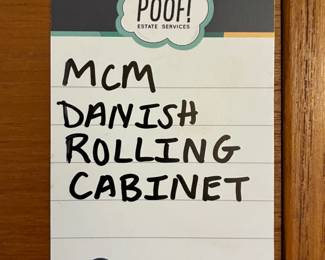 POOF!
ESTATE SERVICES
MCM
DANISH
ROLLING
CABINET